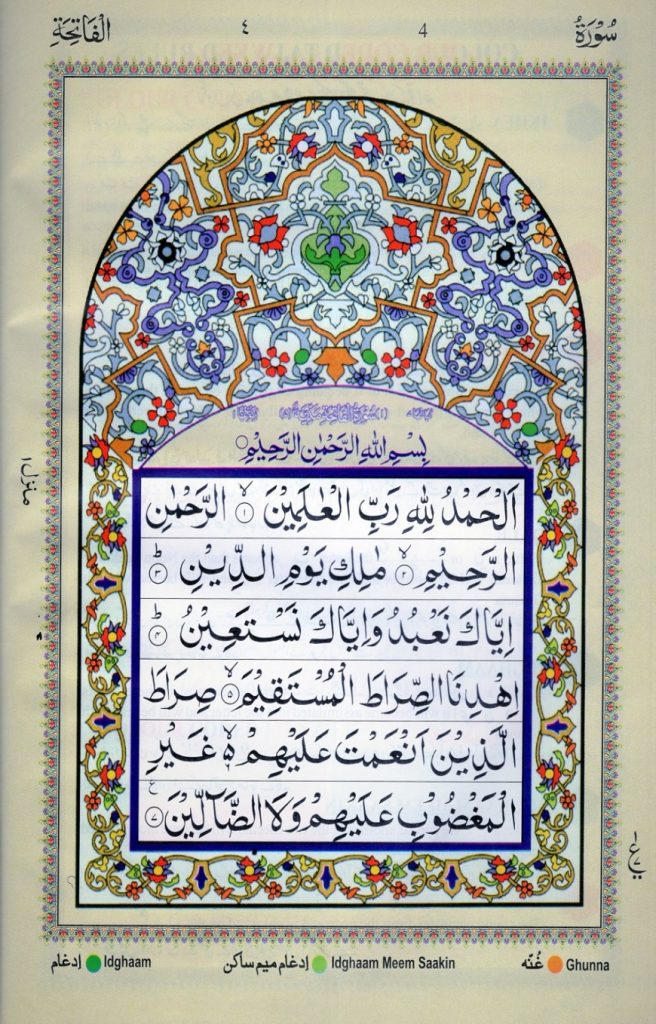 سُوْرَةُ 4 ٤ الْفَاتِحَةِ
بِسْمِ اللهِ الرَّحْمٰنِ الرَّحِيْمِ
اَلْحَمْدُ لِلّٰهِ رَبِّ الْعٰلَمِيْنَ ۙ﴿۱﴾ الرَّحْمٰنِ
الرَّحِيْمِ ۙ﴿۲﴾ مٰلِكِ يَوْمِ الدِّيْنِ ؕ﴿۳﴾
اِيَّاكَ نَعْبُدُ وَاِيَّاكَ نَسْتَعِيْنُ ؕ﴿۴﴾
اِهْدِنَا الصِّرَاطَ الْمُسْتَقِيْمَ ۙ﴿۵﴾ صِرَاطَ
الَّذِيْنَ اَنْعَمْتَ عَلَيْهِمْ ۙ۬ۦ غَيْرِ
الْمَغْضُوْبِ عَلَيْهِمْ وَلَا الضَّآلِّيْنَ ﴿۷﴾
منزل ۱
غُنّه Ghunna ادغام میم ساکن Idghaam Meem Saakin ادغام Idghaam